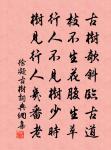 古樹欹斜臨古道
枝不生花腹生草
行人不見樹少時
樹見行人幾番老
徐凝古樹詩詞典網集